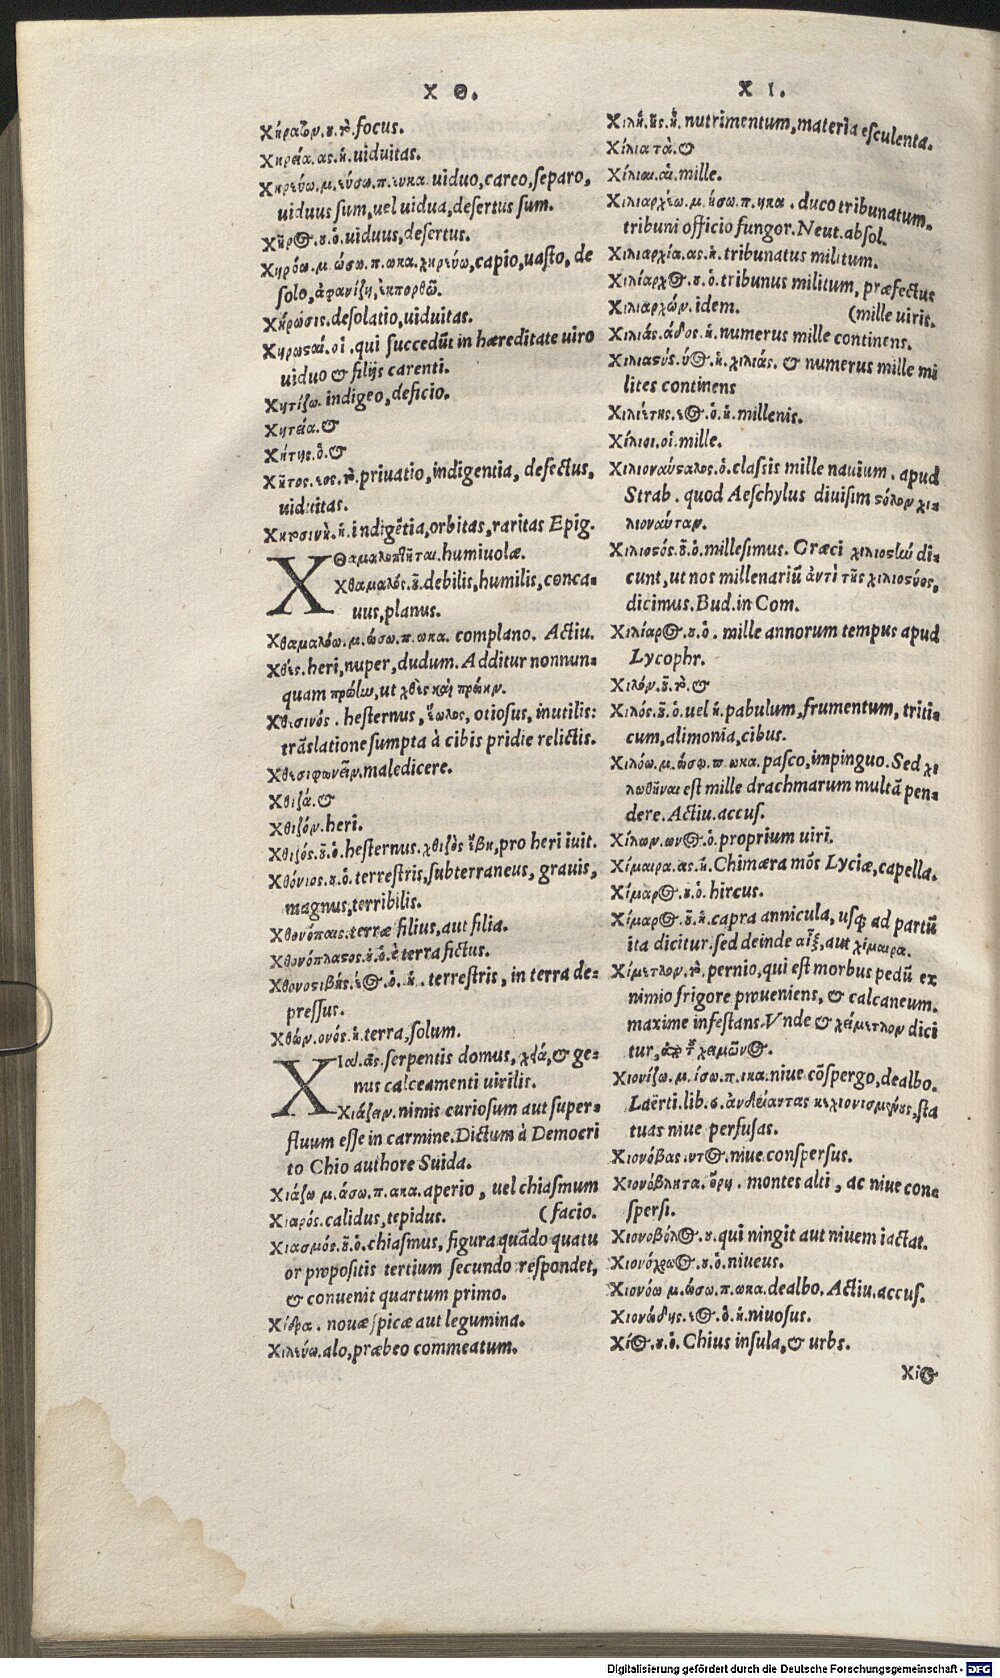 X Θ.
Χήρατον.ου.τὸ.focus.
Χηρεία.ας.ἡ.uiduitas.
Χηρεύω.μ.εύσω.π.ευκα.uiduo,careo,separo,
uiduus sum,uel uidua,desertus sum.
Χῆρος.ου.ὁ.uiduus,desertus.
Χηρόω.μ.ώσω.π.ωκα.χηρεύω,capio,uasto, de
solo,ἀφανίζω,ἐκπορθῶ.
Χήρωσις.desolatio,uiduitas.
Χηρωσταί.οἱ.qui succedūt in hæreditate uiro
uiduo & filijs carenti.
Χητίζω.indigeo,deficio.
Χητεία.&
Χήτης.ὁ.&
Χῆτος.εος.τὸ.priuatio,indigentia, defectus,
uiduitas.
Χητοσινὴ.ἡ.indigētia,orbitas,raritas Epig.
Χθαμαλοπτῆται.humiuolæ.
Χθαμαλός.οῦ.debilis,humilis,conca-
uus,planus.
Χθαμαλόω.μ.ώσω.π.ωκα. complano. Actiu.
Χθές.heri,nuper,dudum.Additur nonnun-
quam πρώην,ut χθὲς καὶ πρώην.
Χθεσινός. hesternus, ἕωλος, otiosus, inutilis:
trāslatione sumpta à cibis pridie relictis.
Χθεσιφωνεῖν.maledicere.
Χθιζά.&
Χθιζόν.heri.
Χθιζός.οῦ.ὁ.hesternus.χθιζὸς ἔβη,pro heri iuit.
Χθόνιος.ου.ὁ.terrestris,subterraneus, grauis,
magnus,terribilis.
Χθονόπαις.terræ filius,aut filia.
Χθονόπλαστος.ου.ὁ.è terra fictus.
Χθονοστιβής.έος.ὁ.ἡ. terrestris, in terra de-
pressus.
Χθών.ονός.ἡ.terra,solum.
Χιά.ᾶς.serpentis domus, χειά,& ge-
nus calceamenti uirilis.
Χιάζειν.nimis curiosum aut super-
fluum esse in carmine.Dictum à Democri
to Chio authore Suida.
Χιάζω μ.άσω.π.ακα.aperio, uel chiasmum
Χιαρός.calidus,tepidus. (facio.
Χιασμός.οῦ.ὁ.chiasmus, figura quādo quatu
or propositis tertium secundo respondet,
& conuenit quartum primo.
Χίδρα. nouæ spicæ aut legumina.
Χιλεύω.alo,præbeo commeatum.
X I.
Χιλή.ῆς.ἡ. nutrimentum,materia esculenta.
Χίλια τὰ.&
Χίλιαι.αἱ.mille.
Χιλιαρχέω.μ.ήσω.π.ηκα. duco tribunatum,
tribuni officio fungor.Neut.absol.
Χιλιαρχία.ας.ἡ.tribunatus militum.
Χιλίαρχος.ου.ὁ.tribunus militum, præfectus
Χιλιαρχών.idem. (mille uiris.
Χιλιάς.άδος.ἡ.numerus mille continens.
Χιλιαστύς.ύος.ἡ.χιλιάς. & numerus mille mi
lites continens
Χιλιέτης.εος.ὁ.ἡ.millenis.
Χίλιοι.οἱ.mille.
Χιλιοναύσταλος.ὁ.classis mille nauium. apud
Strab. quod Aeschylus diuisim στόλον χι-
λιοναύταν.
Χιλιοστός.οῦ.ὁ.millesimus. Græci χιλιοστὺν di-
cunt,ut nos millenariū ἀντὶ τῆς χιλιοστύος,
dicimus.Bud.in Com.
Χιλίαρος.ου.ὁ. mille annorum tempus apud
Lycophr.
Χιλόν.οῦ.τὸ.&
Χιλός.οῦ.ὁ.uel ἡ.pabulum,frumentum, triti-
cum,alimonia,cibus.
Χιλόω.μ.ώσω.π.ωκα.pasco,impinguo.Sed χι
λωθῆναι est mille drachmarum multā pen-
dere.Actiu.accus.
Χίλων.ωνος.ὁ.proprium uiri.
Χίμαιρα.ας.ἡ.Chimæra mōs Lyciæ,capella.
Χίμαρος.ου.ὁ.hircus.
Χίμαρος.οῦ.ἡ.capra annicula, usq; ad partū
ita dicitur.sed deinde αἴξ,aut χίμαιρα.
Χίμετλον.τὸ.pernio,qui est morbus pedū ex
nimio frigore proueniens, & calcaneum.
maxime infestans.Vnde & χείμετλον dici
tur,ἀπὸ τοῦ χειμῶνος.
Χιονίζω.μ.ίσω.π.ικα.niue cōspergo,dealbo.
Laërti.lib.6.ἀνδριάντας κεχιονισμένους,sta
tuas niue perfusas.
Χιονόβας.ντος.niue conspersus.
Χιονόβλητα.ὄρη. montes alti, ac niue con-
spersi.
Χιονοβόλος.ου.qui ningit aut niuem iactat.
Χιονόχροος.ου.ὁ.niueus.
Χιονόω μ.ώσω.π.ωκα.dealbo.Actiu.accus.
Χιονώδης.εος.ὁ.ἡ.niuosus.
Χίος.ου.ὁ.Chius insula,& urbs.
Χίος
Digitalisierung gefördert durch die Deutsche Forschungsgemeinschaft - DFG